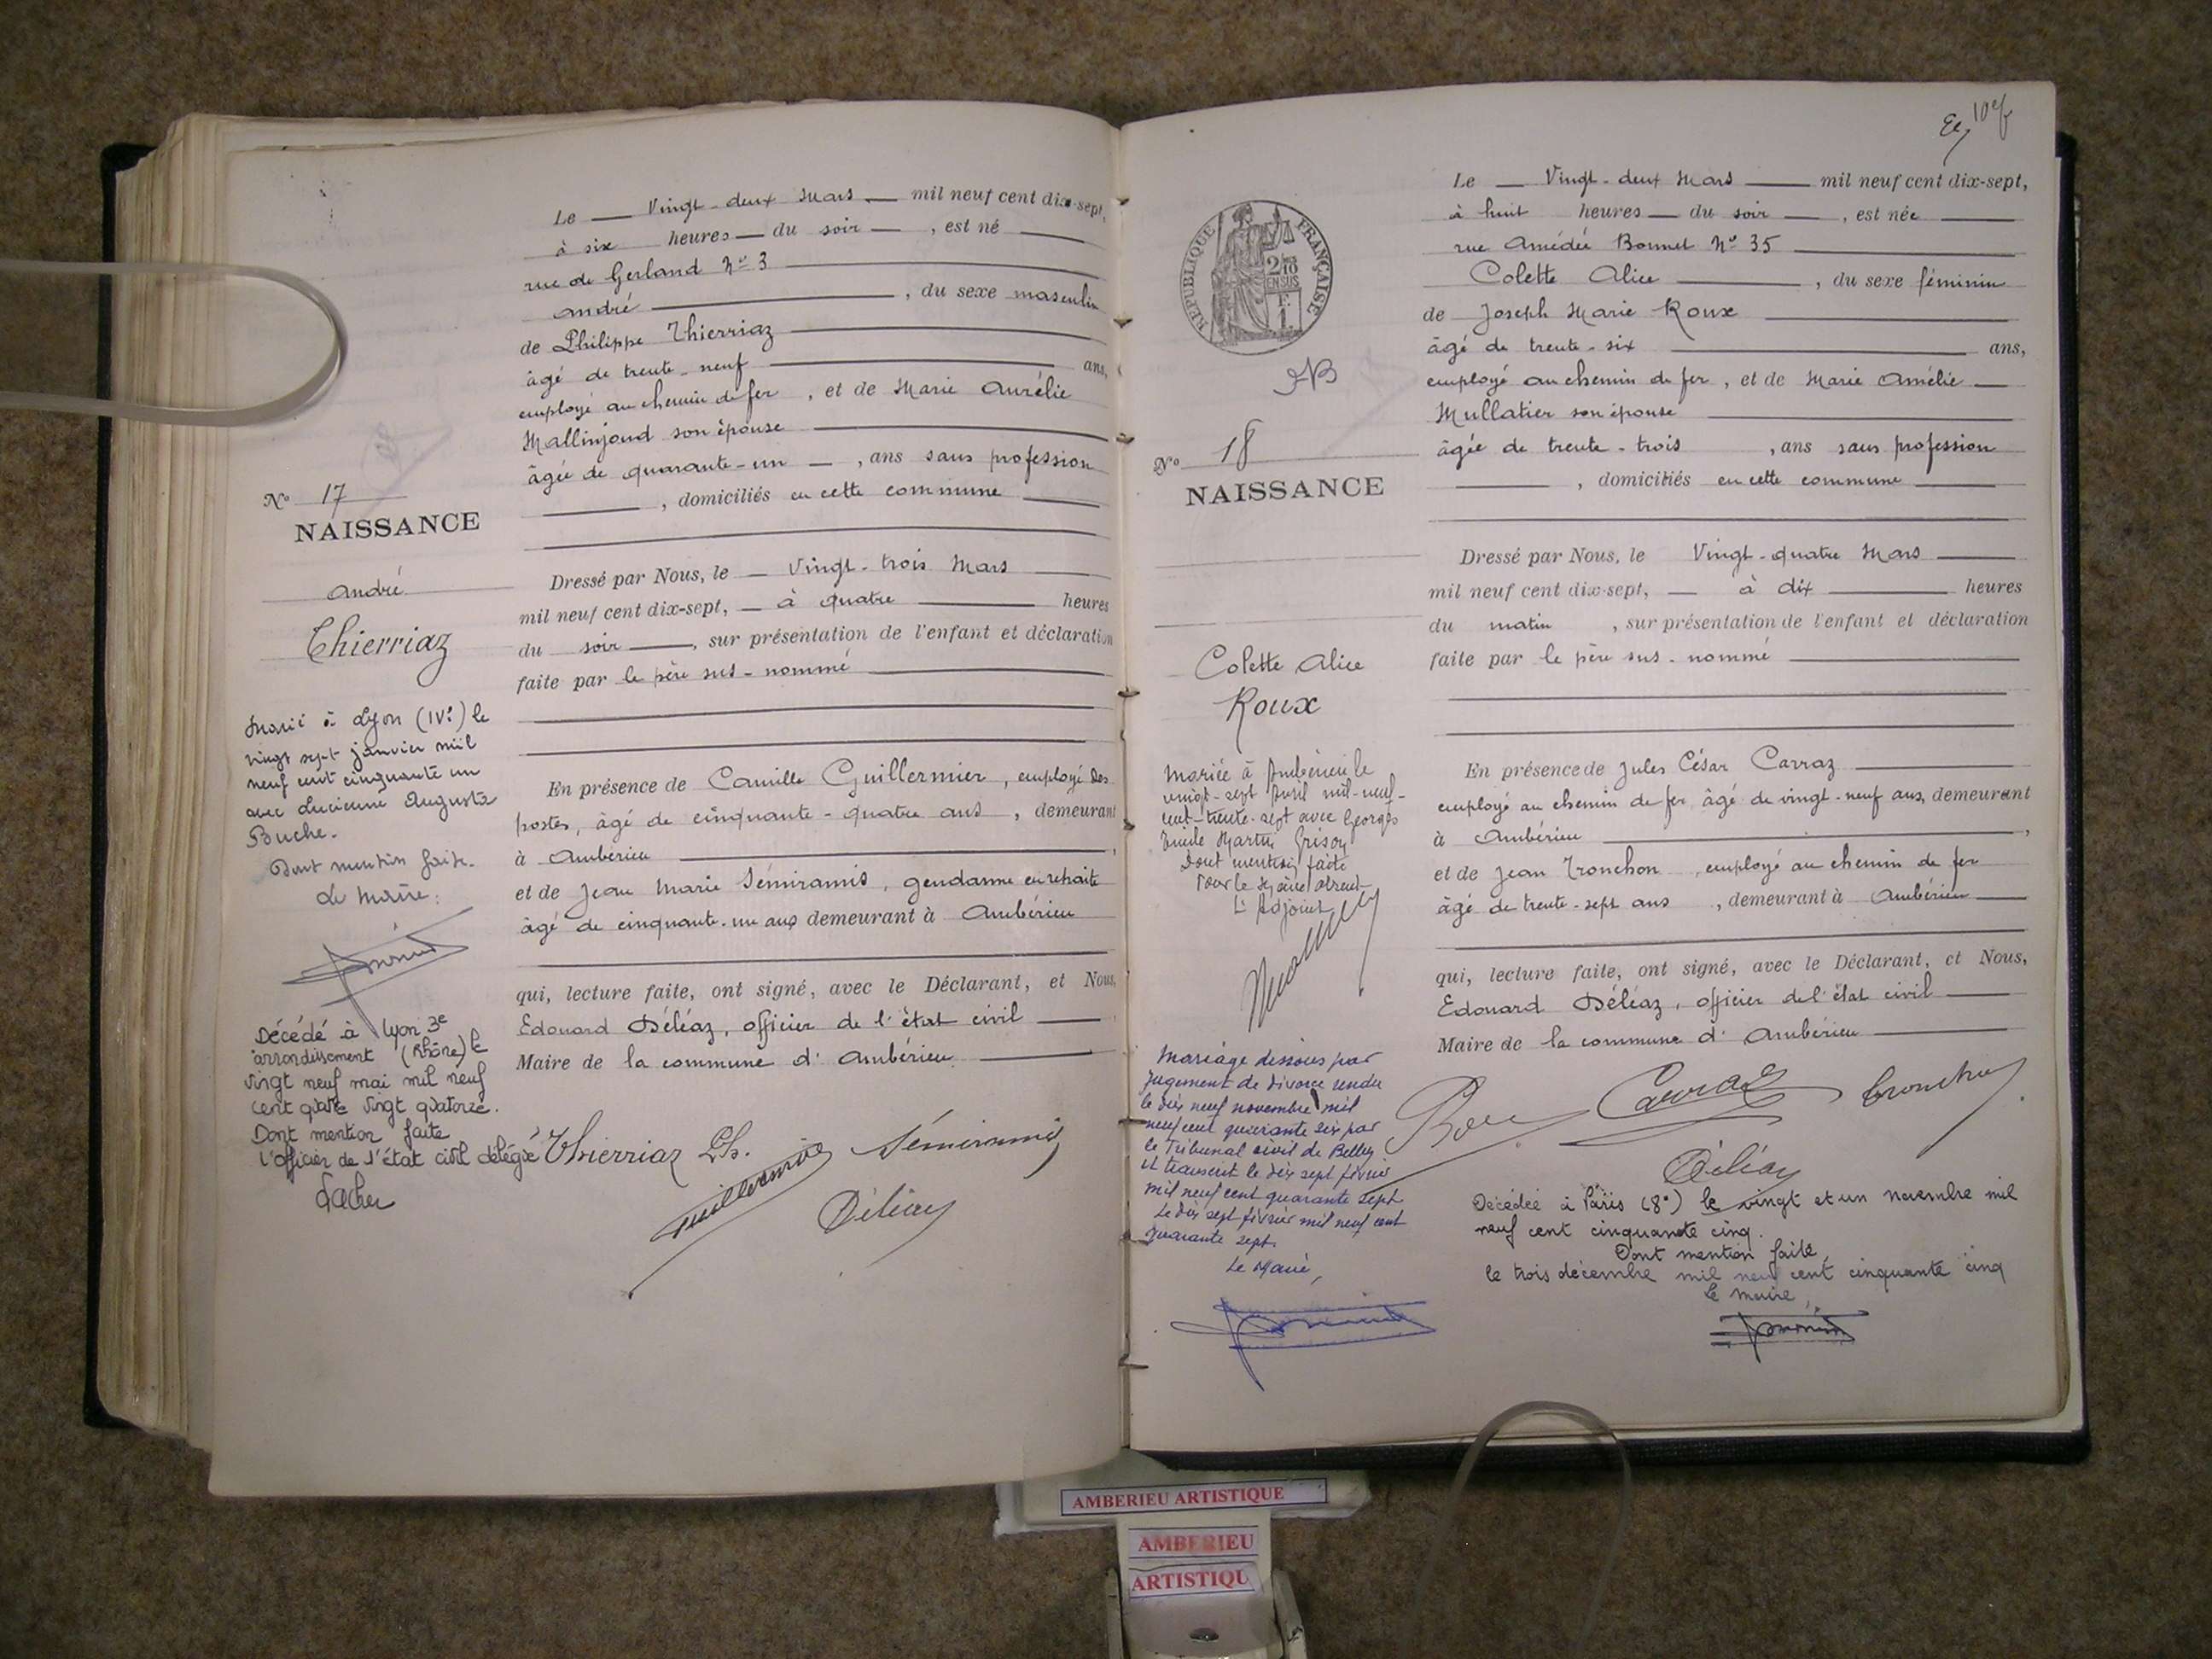 Le — Vingt-deux Mars — mil neuf cent dix-sept,
à six heures — du soir — , est né
rue de Gerland N° 3
André , du sexe masculin
de Philippe Thierriaz
âgé de trente-neuf ans,
employé au chemin de fer , et de Marie Aurélie
Mallinjoud son épouse
âgée de quarante-un — , ans sans profession
, domiciliés en cette commune
N° 17
NAISSANCE
André
Thierriaz
Dressé par Nous, le — Vingt-trois Mars
mil neuf cent dix-sept, — à quatre heures
du soir , sur présentation de l'enfant et déclaration
faite par le père sus-nommé
Marié à Lyon (IVe) le
vingt sept janvier mil
neuf cent cinquante un
avec Lucienne Augusta
Buche.
Dont mention faite.
Le Maire:
En présence de Camille Guillermier, employé des
postes, âgé de cinquante-quatre ans , demeurant
à Ambérieu ,
et de Jean Marie Sémiramis, gendarme en retraite
âgé de cinquante-un ans demeurant à Ambérieu
qui, lecture faite, ont signé, avec le Déclarant, et Nous,
Edouard Déléaz, officier de l'état civil
Maire de la commune d'Ambérieu
Décédé à Lyon 3e
arrondissement (Rhône) le
vingt neuf mai mil neuf
cent quatre vingt quatorze.
Dont mention faite
l'officier de l'état civil délégué
Thierriaz Ph.
Guillermier
Sémiramis
Déléaz
10e
REPUBLIQUE FRANÇAISE
2/10 EN SUS
F.
1.
N° 18
NAISSANCE
Colette Alice
Roux
Le — Vingt-deux Mars — mil neuf cent dix-sept,
à huit heures — du soir — , est née
rue Amédée Bonnet N° 35
Colette Alice , du sexe féminin
de Joseph Marie Roux
âgé de trente-six ans,
employé au chemin de fer , et de Marie Amélie
Mullatier son épouse
âgée de trente-trois , ans sans profession
, domiciliés en cette commune
Dressé par Nous, le Vingt-quatre Mars
mil neuf cent dix-sept, — à dix heures
du matin , sur présentation de l'enfant et déclaration
faite par le père sus-nommé
En présence de Jules César Carraz
employé au chemin de fer âgé de vingt-neuf ans, demeurant
à Ambérieu ,
et de Jean Tronchon , employé au chemin de fer
âgé de trente-sept ans , demeurant à Ambérieu
qui, lecture faite, ont signé, avec le Déclarant, et Nous,
Edouard Déléaz, officier de l'état civil
Maire de la commune d'Ambérieu
Roux
Carraz
Tronchon
Déléaz
Mariée à Ambérieu le
vingt-sept Avril mil-neuf-
cent-trente-sept avec Georges
Emile Martin Grison
Dont mention faite
Pour le Maire absent
L'Adjoint
Mariage dissous par
jugement de divorce rendu
le dix neuf novembre mil
neuf cent quarante six par
le Tribunal civil de Belley
et transcrit le dix sept février
mil neuf cent quarante sept
Le dix sept février mil neuf cent
quarante sept.
Le Maire,
Décédée à Paris (8e) le vingt et un novembre mil
neuf cent cinquante cinq.
Dont mention faite,
le trois décembre mil neuf cent cinquante cinq
Le maire,
AMBERIEU ARTISTIQUE
AMBERIEU
ARTISTIQU